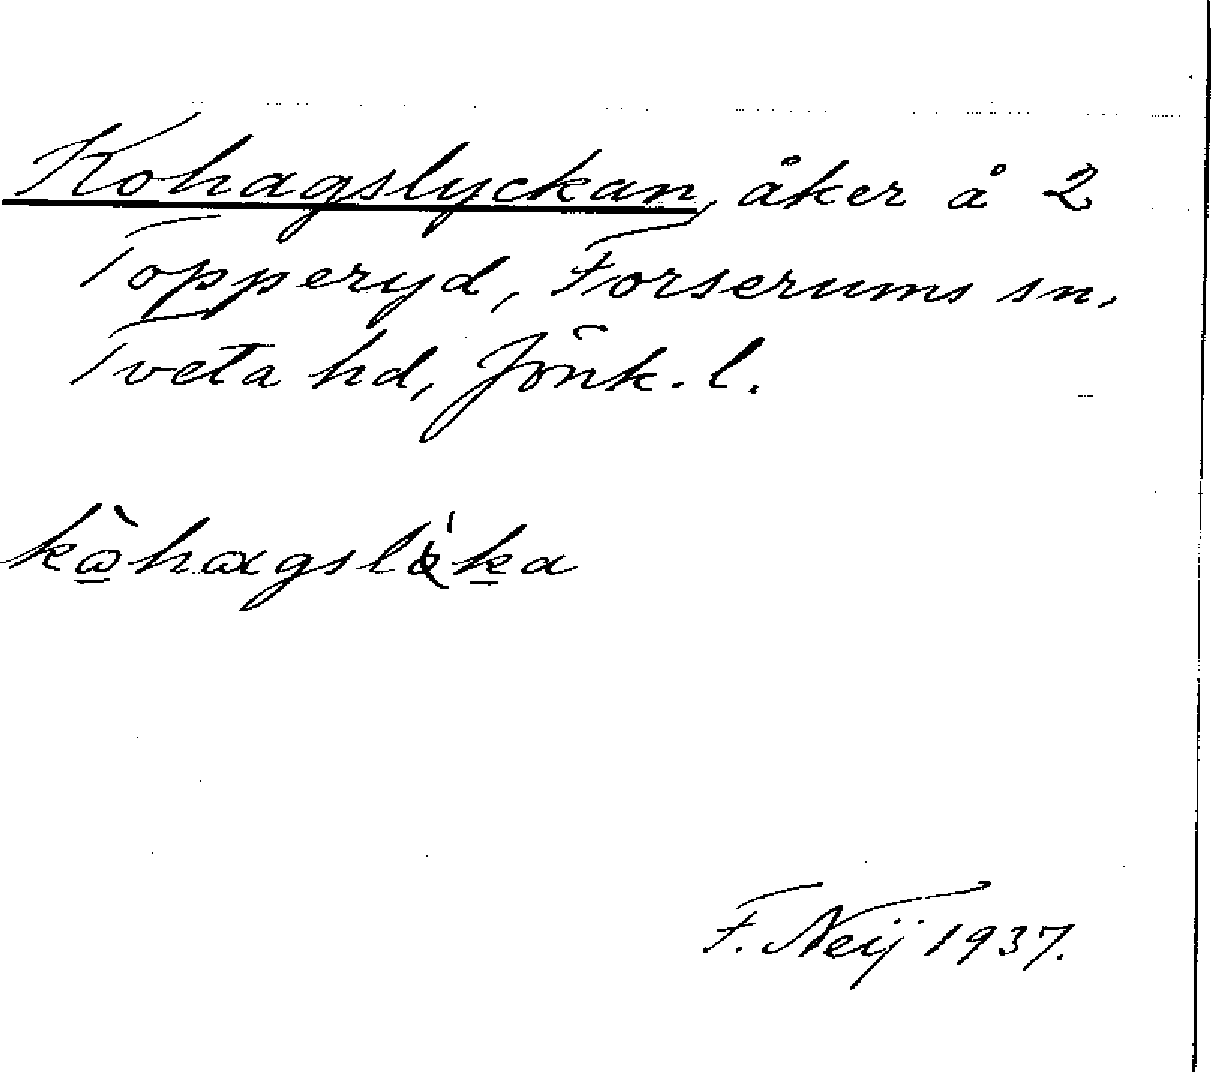 Kohagslyckan, åker å 2
Topperyd, Forserums sn,
Tveta hd, Jönk. l.
F. Neij 1937.